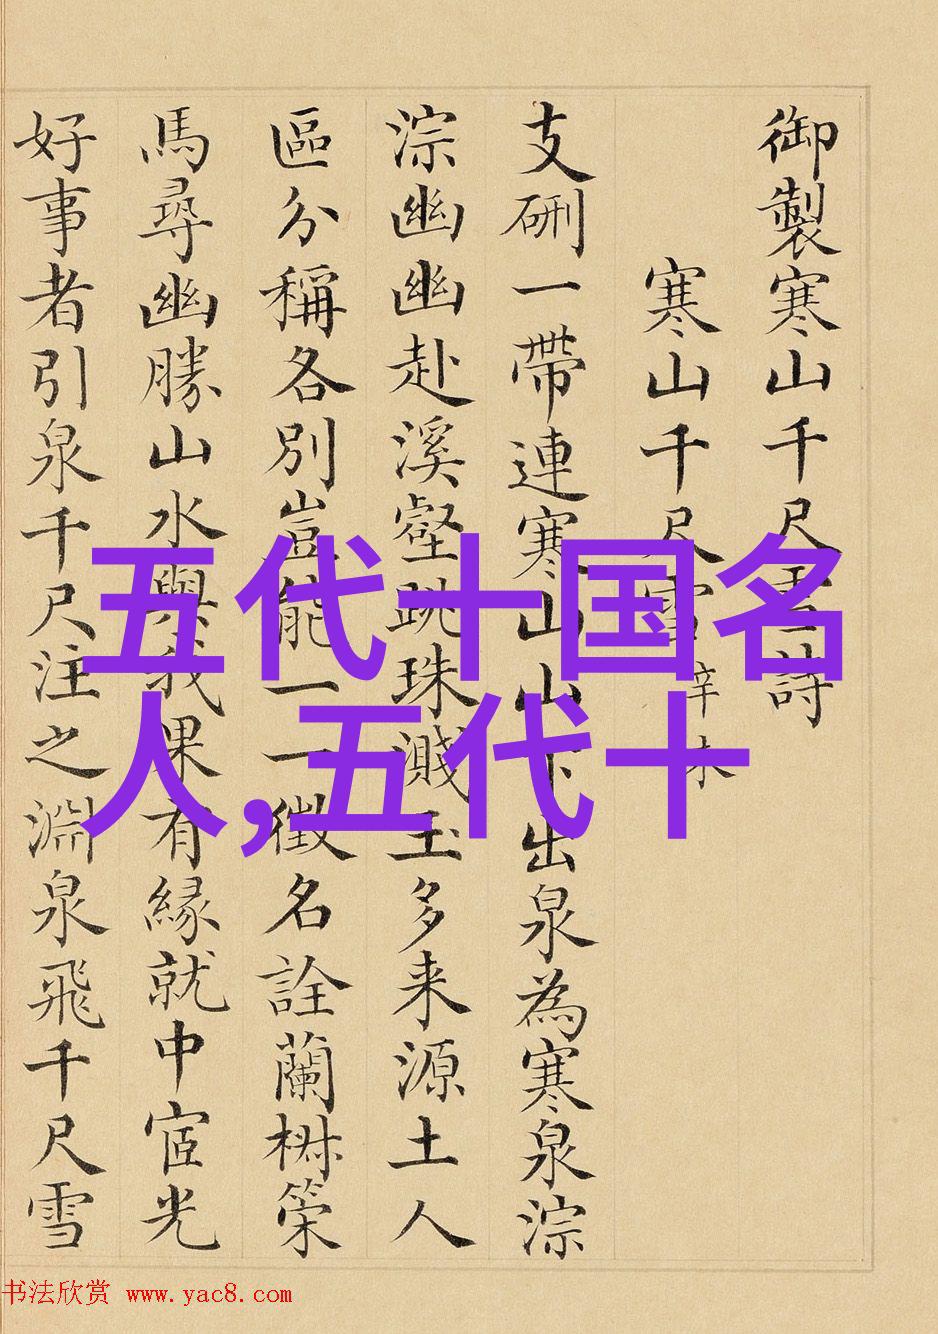 御製寒山千尺雪詩
寒山千尺雪 辛未
支硎一帶連寒山山下出泉為寒泉淙
淙幽幽赴溪壑跳珠濺玉多来源土人
區分稱各別豈能一一徵名詮蘭樹策
馬尋幽勝山水與我果有緣就中宧光
好事者引泉千尺注之淵泉飛千尺雪
五代十国名
人,五代十
书法欣赏 www.yac8.com